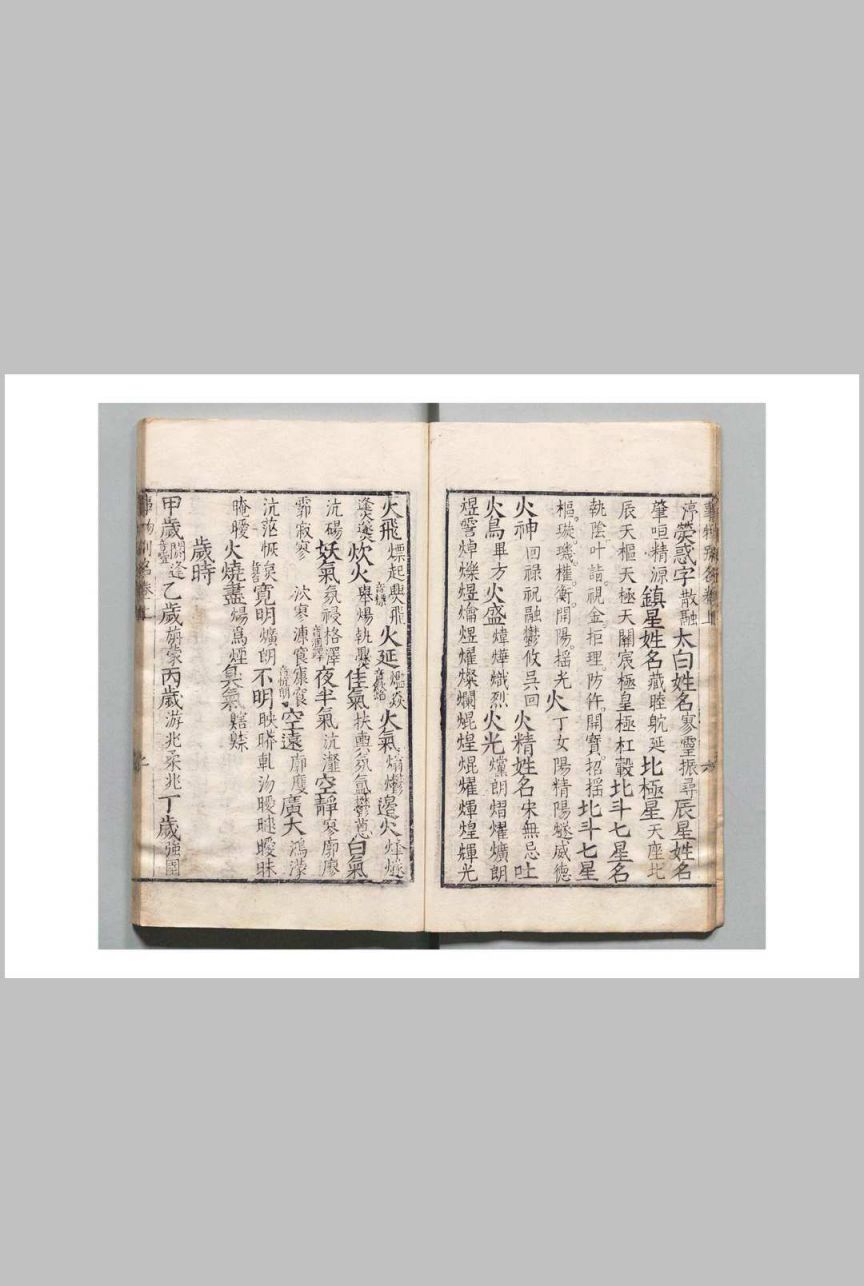 渟熒惑字散融太白姓名寥靈振尋辰星姓名
肇咺精源鎮星姓名藏睦躭延北極星天座北
辰天樞天極天關宸極皇極杠轂北斗七星名
執陰叶詣視金拒理防仵開寶招搖北斗七星
樞璇璣權衡開陽搖光火丁女陽精陽燧威德
火神回祿祝融鬱攸吳回火精姓名宋無忌吐
火鳥畢方火盛煒燁熾烈火光爣朗熠燿爌朗
煜霅焯爍煜爚煜燿燦爛焜煌焜燿煇煌輝光
火飛熛起熛飛火延爁焱火氣熇鬱邊火烽燧
炊火舉煬執爨佳氣扶輿氛氳鬱蔥白氣
沆碭妖氣氛祲格澤夜半氣沆瀣空靜寥廓廖
寂寥泬寥漮㝗空遠廓廣大鴻濛
沆茫寬明爌朗不明映㬢軋沕曖曃曖昧
晻曖火燒盡煬爲煙臭氣
歲時
甲歲閼逢乙歲旃蒙丙歲游兆柔兆丁歲強圉